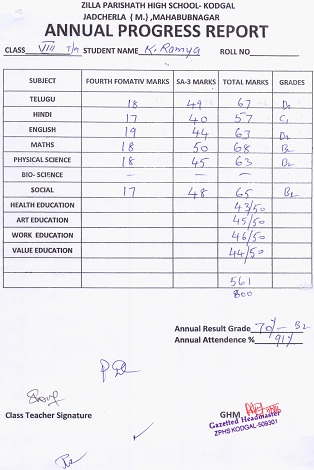 ZILLA PARISHATH HIGH SCHOOL- KODGAL
JADCHERLA { M.} ,MAHABUBNAGAR
ANNUAL PROGRESS REPORT
CLASS VIII T/M STUDENT NAME K. Ramya ROLL NO
SUBJECT FOURTH FOMATIV MARKS SA-3 MARKS TOTAL MARKS GRADES
TELUGU 18 49 67 B2
HINDI 17 40 57 C1
ENGLISH 19 44 63 B2
MATHS 18 50 68 B2
PHYSICAL SCIENCE 18 45 63 B2
BIO- SCIENCE — — —
SOCIAL 17 48 65 B2
HEALTH EDUCATION 43/50
ART EDUCATION 45/50
WORK EDUCATION 46/50
VALUE EDUCATION 44/50
561
800
Annual Result Grade 70% - B2
Annual Attendence % 91%
Class Teacher Signature
GHM
Gazetted Headmaster
ZPHS KODGAL-509301